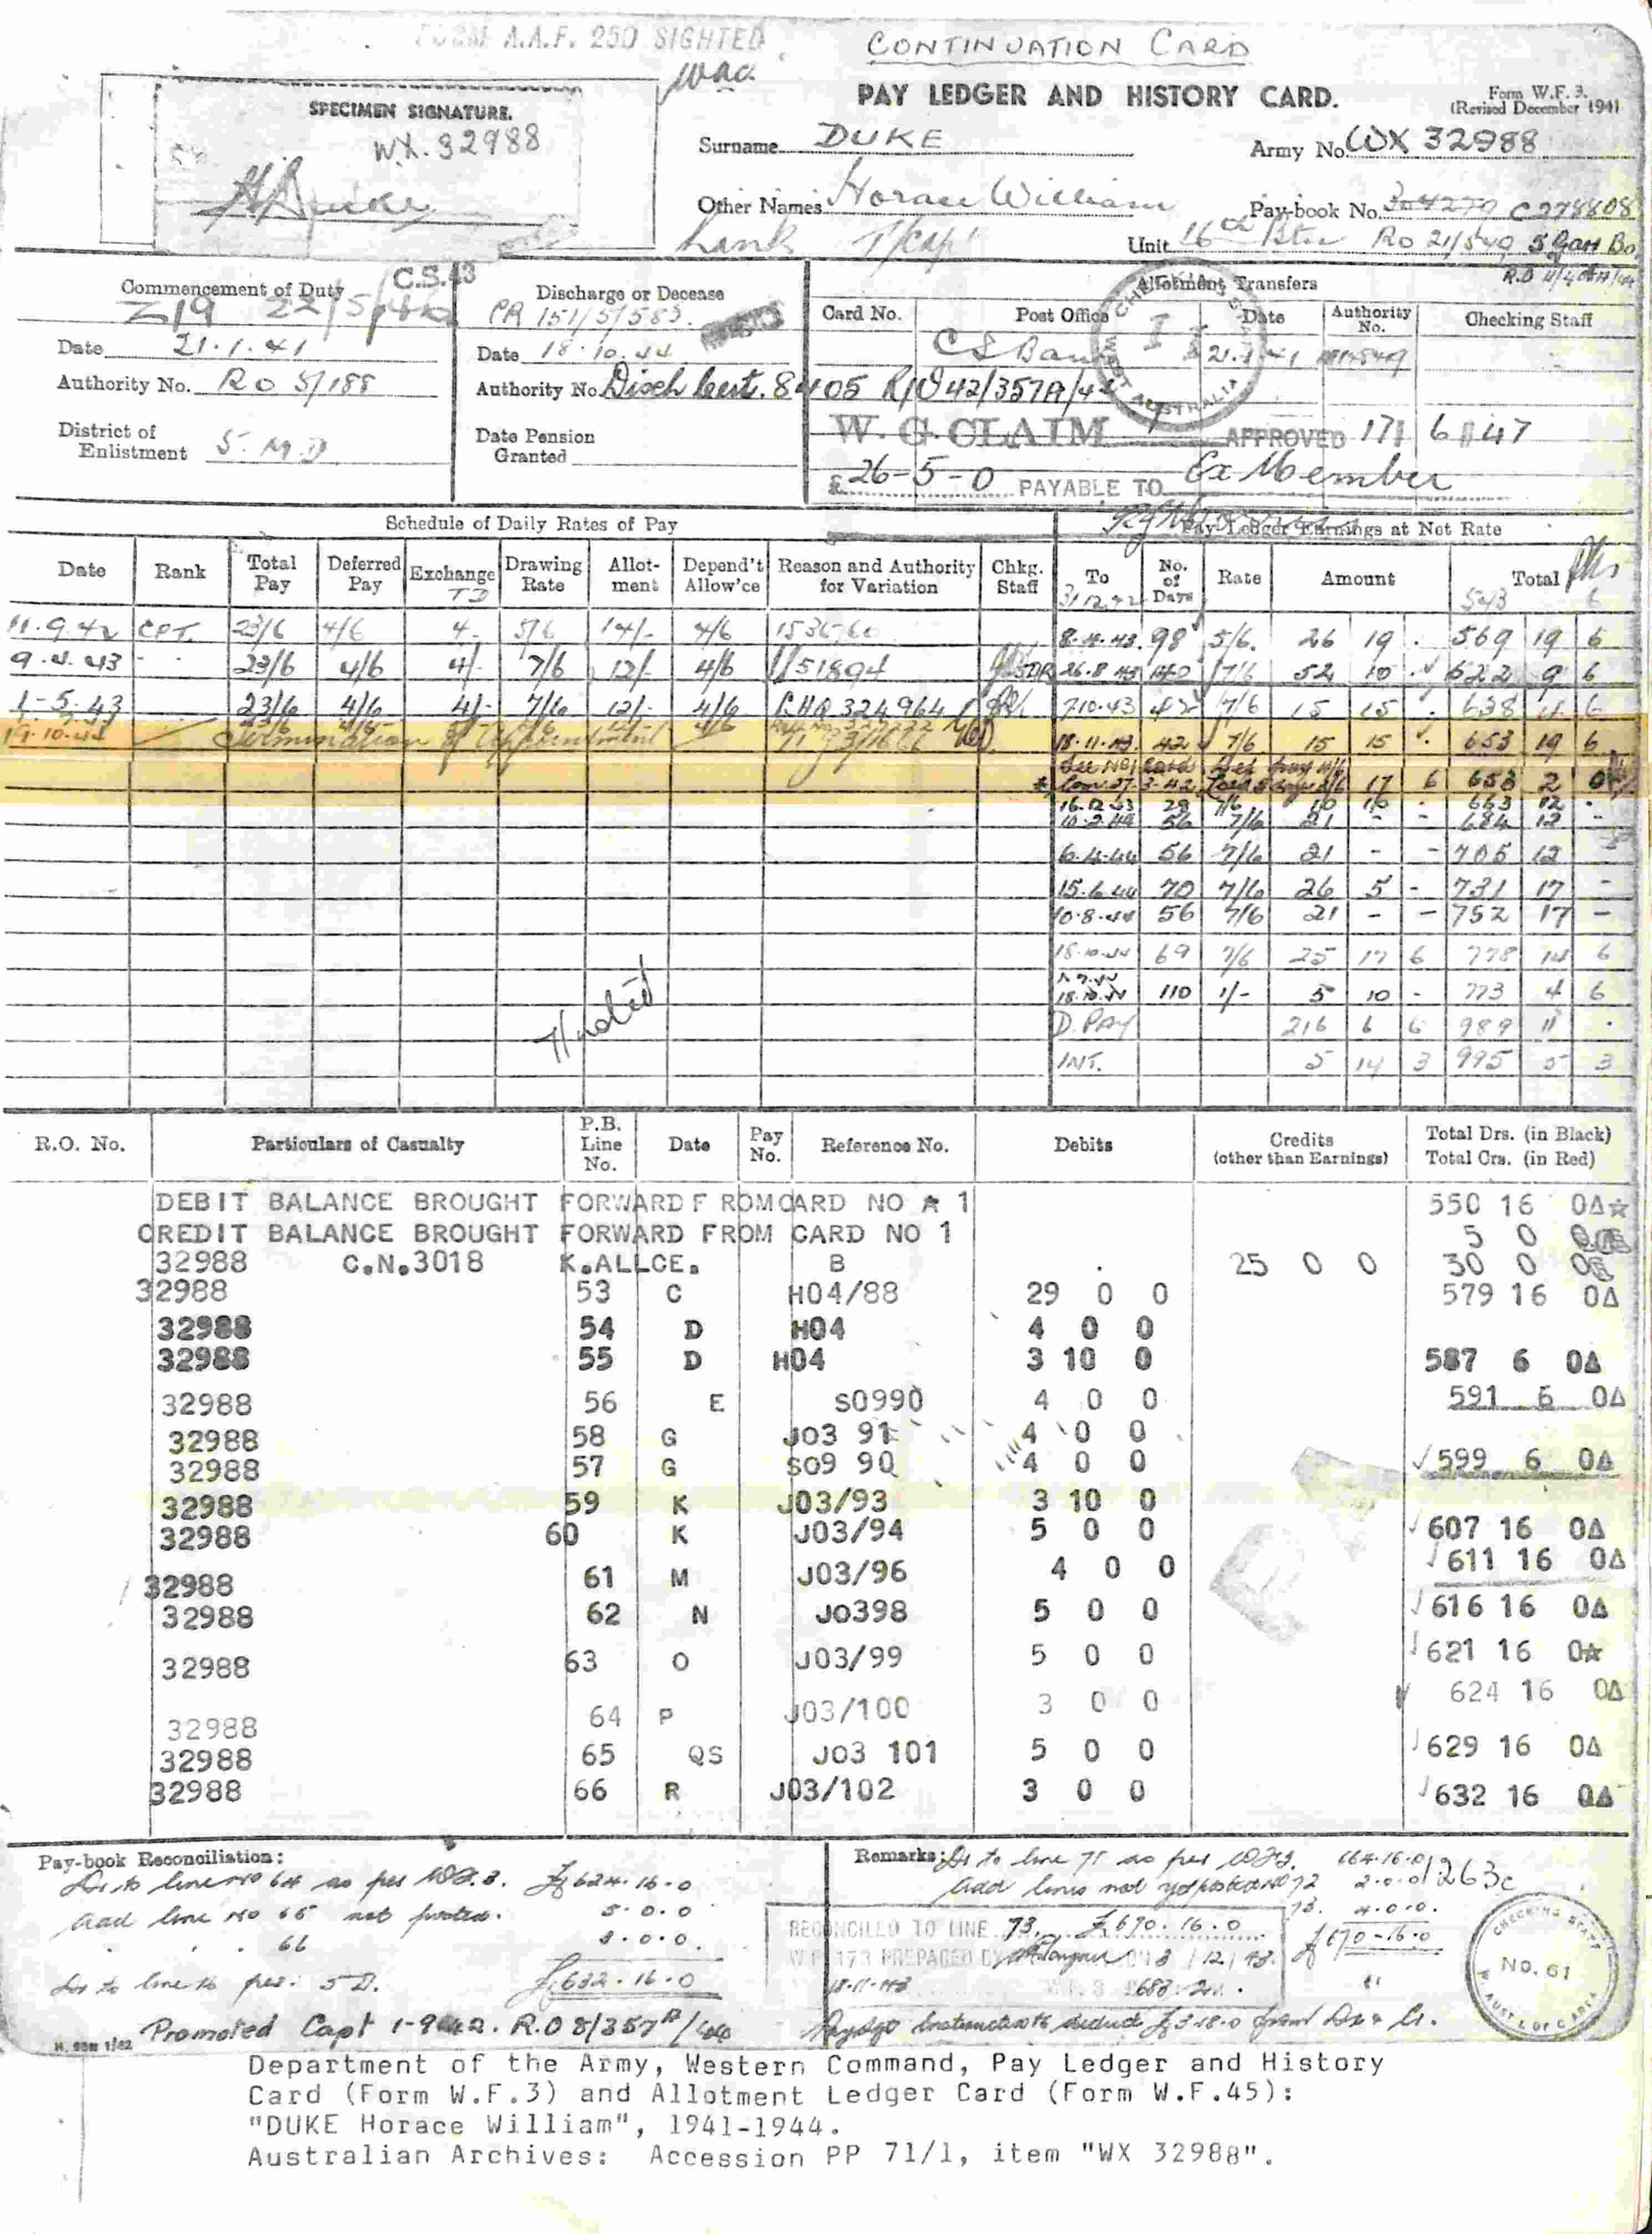 FORM A.A.F. 250 SIGHTED
CONTINUATION CARD
PAY LEDGER AND HISTORY CARD.
Form W.F. 3.
(Revised December 1941
SPECIMEN SIGNATURE.
WX. 32988
HDuke
Surname DUKE
Army No. WX 32988
Other Names Horace William
Pay-book No. C278808
T/Capt
Unit 16th Btn RO 21/549 5 Garr Bn
C.S.43
Commencement of Duty
Z19 22/5/42
Date 21.1.41
Authority No. RO 5/188
District of Enlistment 5.M.D
Discharge or Decease
PR 151/5/583
Date 18.10.44
Authority No. Disch Cert. 8405 R/O 42/357A/44
Date Pension Granted
Allotment Transfers
Card No. Post Office Date Authority No. Checking Staff
CS Bank 21.1.41
W.G. CLAIM APPROVED 17 6 47
£ 26-5-0 PAYABLE TO Ex Member
Schedule of Daily Rates of Pay
Pay Ledger Earnings at Net Rate
Date Rank Total Pay Deferred Pay Exchange Drawing Rate Allotment Depend't Allow'ce Reason and Authority for Variation Chkg. Staff To No. of Days Rate Amount Total
31.12.42 543 6
11.9.42 CPT. 23/6 4/6 4- 5/6 14/- 4/6 153676 8.4.43. 98 5/6. 26 19 . 569 19 6
9.4.43 - - 23/6 4/6 4/- 7/6 12/- 4/6 151894 26.8.43 140 7/6 52 10 . 622 9 6
1-5-43 23/6 4/6 4/- 7/6 12/- 4/6 LHQ 324964 7.10.43 42 7/6 15 15 . 638 4 6
19.10.44 Termination of Appointment 18.11.43. 42 7/6 15 15 . 653 19 6
17 6 653 2 0
16.12.43 28 7/6 10 10 . 663 12 .
10.2.44 56 7/6 21 - - 684 12 -
6.4.44 56 7/6 21 - - 705 12 -
15.6.44 70 7/6 26 5 - 731 17 -
10.8.44 56 7/6 21 - - 752 17 -
18.10.44 69 7/6 25 17 6 778 14 6
18.10.44 110 1/- 5 10 - 773 4 6
D. PAY 216 6 6 989 11 .
INT. 5 14 3 995 5 3
R.O. No. Particulars of Casualty P.B. Line No. Date Pay No. Reference No. Debits Credits (other than Earnings) Total Drs. (in Black) Total Crs. (in Red)
DEBIT BALANCE BROUGHT FORWARD F ROMCARD NO 1 550 16 0Δ☆
CREDIT BALANCE BROUGHT FORWARD FROM CARD NO 1 5 0 0
32988 C.N.3018 K.ALLCE. B 25 0 0 30 0 0
32988 53 C H04/88 29 0 0 579 16 0Δ
32988 54 D H04 4 0 0
32988 55 D H04 3 10 0 587 6 0Δ
32988 56 E S0990 4 0 0 591 6 0Δ
32988 58 G J03 91 4 0 0
32988 57 G S09 90 4 0 0 599 6 0Δ
32988 59 K J03/93 3 10 0
32988 60 K J03/94 5 0 0 607 16 0Δ
32988 61 M J03/96 4 0 0 611 16 0Δ
32988 62 N J0398 5 0 0 616 16 0Δ
32988 63 O J03/99 5 0 0 621 16 0☆
32988 64 P J03/100 3 0 0 624 16 0Δ
32988 65 QS J03 101 5 0 0 629 16 0Δ
32988 66 R J03/102 3 0 0 632 16 0Δ
Pay-book Reconciliation:
Drs to line No 64 as per W.F.3. £624.16.0
Add line No 65 not posted. 5.0.0
. . . 66 3.0.0.
£632.16.0
Promoted Capt 1-9-42. R.O 8/357
Remarks: Drs to line 71 as per W.F.3. 664.16.0
Add lines not yet posted No 72 2.0.0
73. 4.0.0.
£670-16-0
1263c
RECONCILED TO LINE 73. £670.16.0
W.F. 173 PREPARED BY ON 3/12/43.
18-11-43
CHECKING STAFF
NO. 61
Department of the Army, Western Command, Pay Ledger and History
Card (Form W.F.3) and Allotment Ledger Card (Form W.F.45):
"DUKE Horace William", 1941-1944.
Australian Archives: Accession PP 71/1, item "WX 32988".